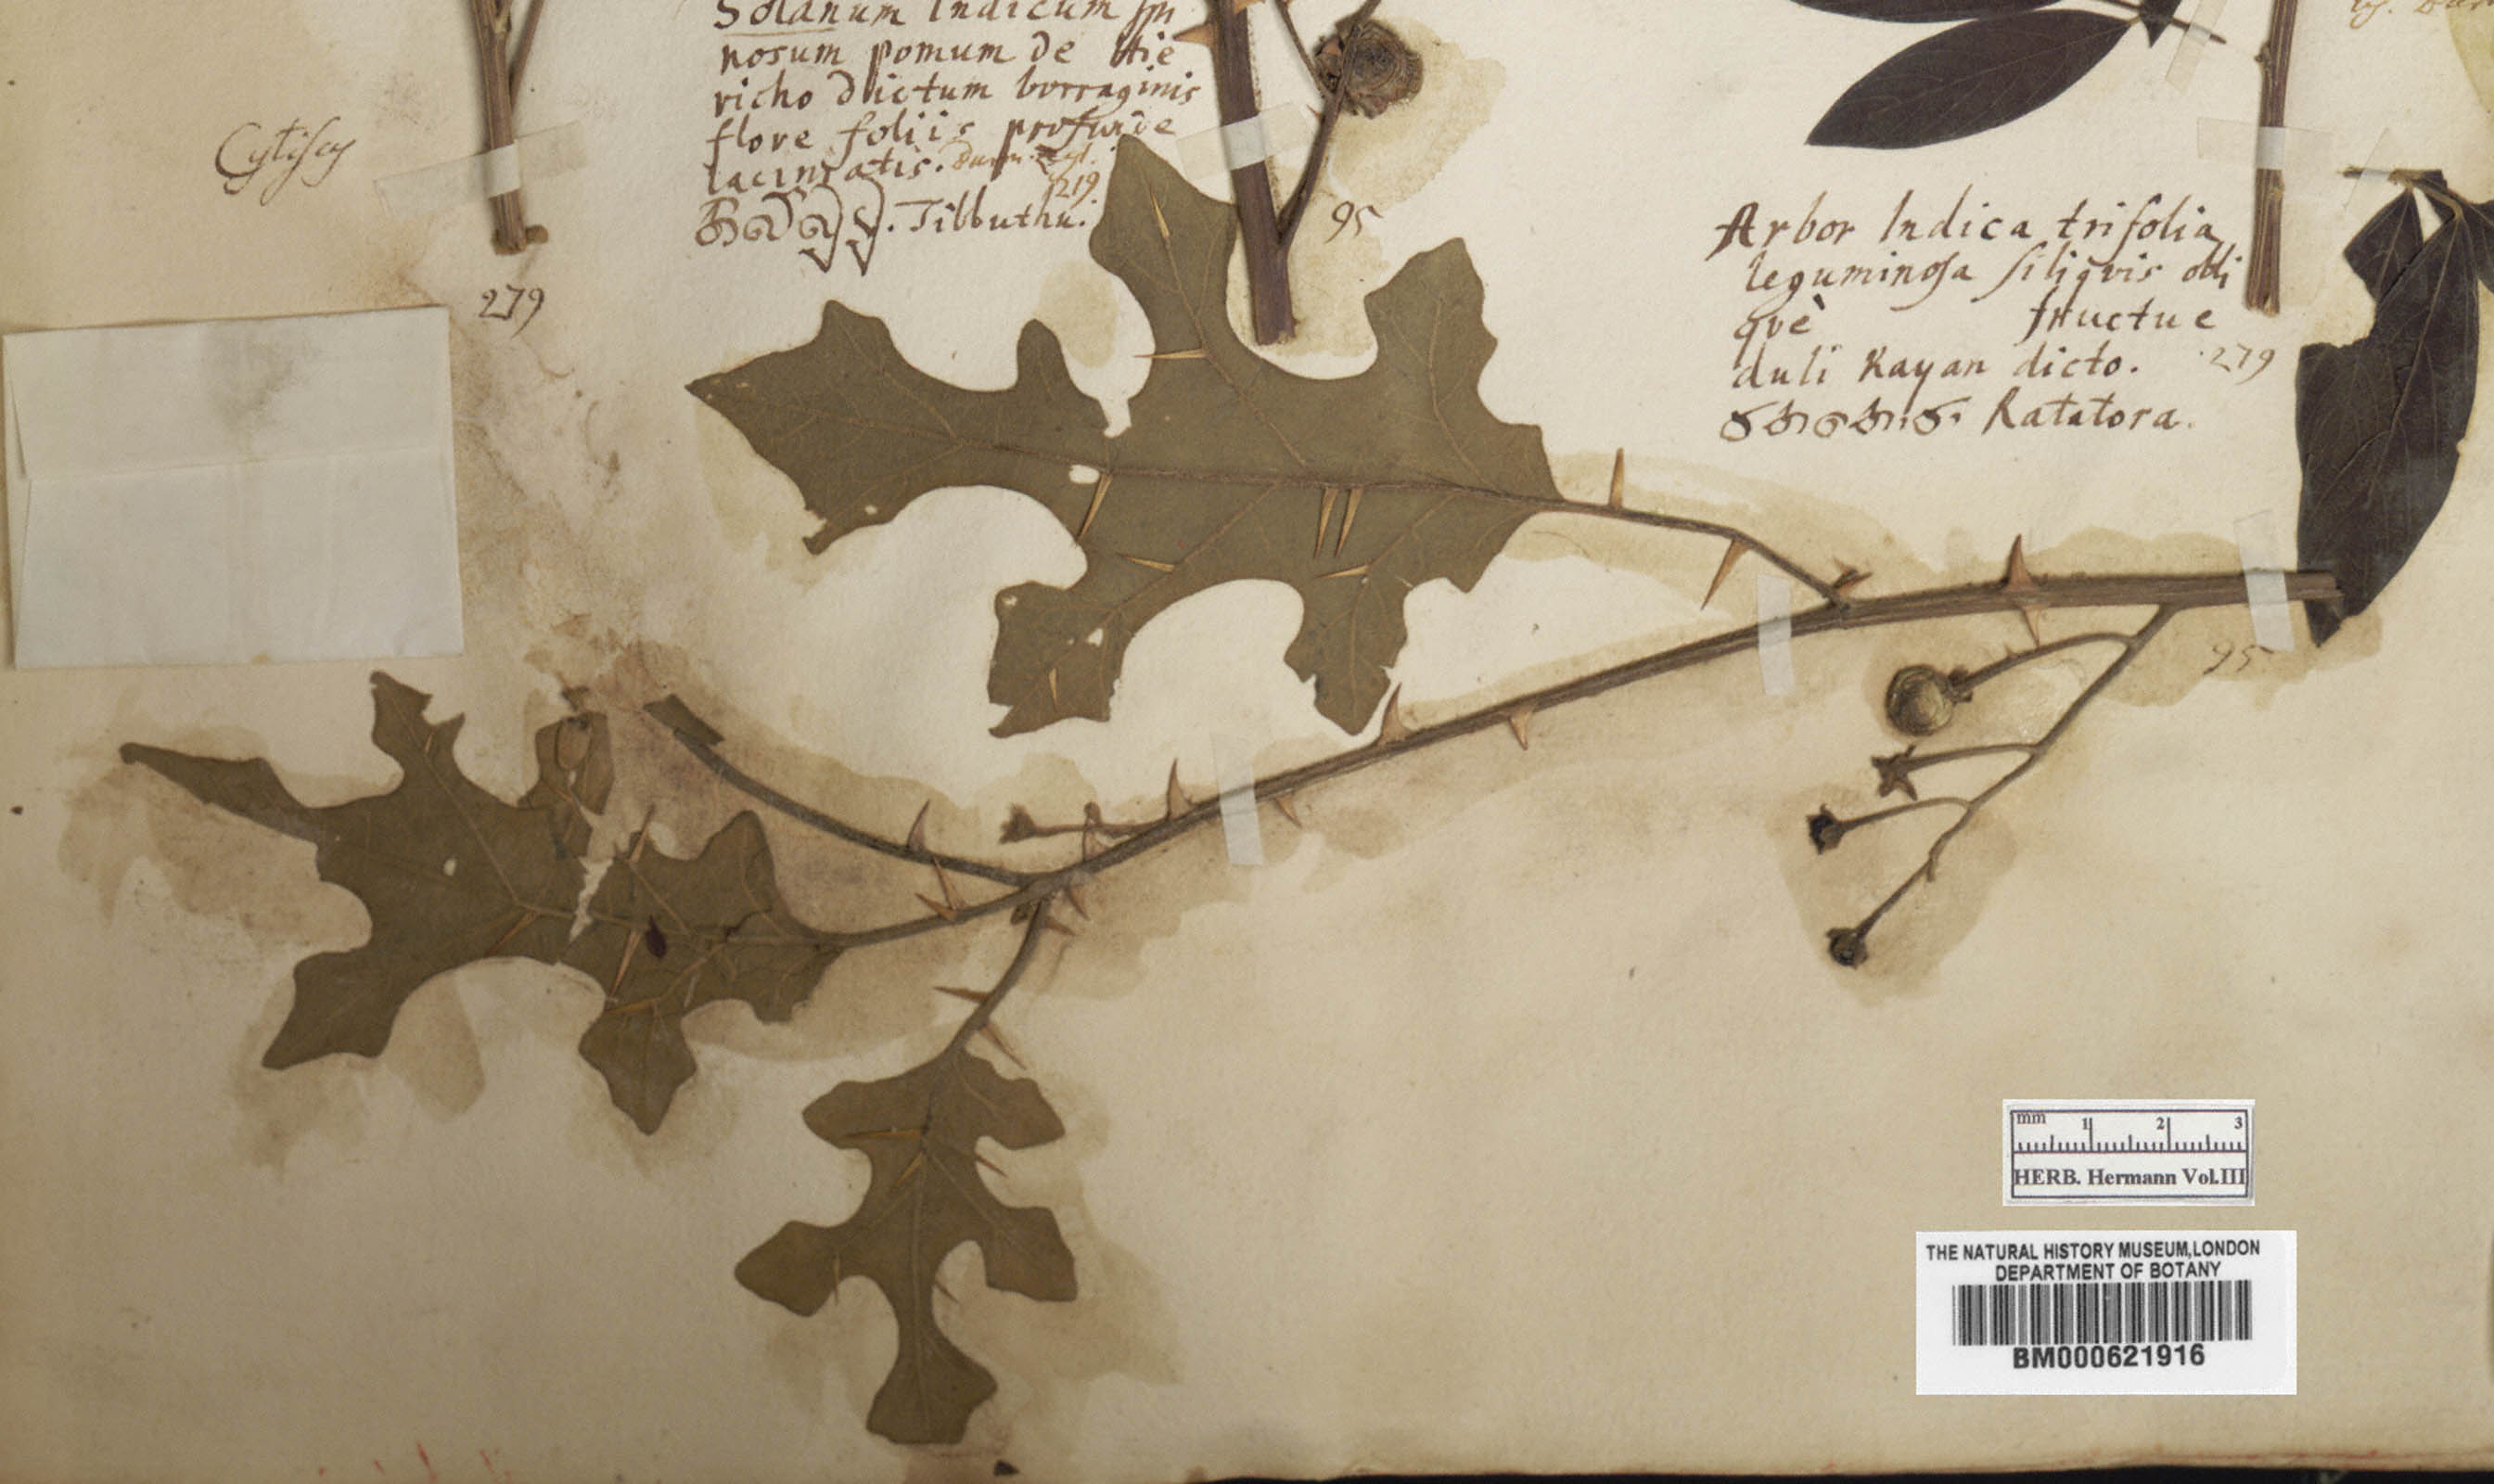 Solanum Indicum spi
nosum pomum de Hie
richo dictum borraginis
flore foliis profunde
laciniatis. Burm. Zeyl.
219
Tibbuthu.
95
Cytisus
279
Arbor Indica trifolia
leguminosa siliqvis obli
qvè fructu e
duli Kayan dicto. 279
Katatora.
95
mm 1 2 3
HERB. Hermann Vol.III
THE NATURAL HISTORY MUSEUM,LONDON
DEPARTMENT OF BOTANY
BM000621916